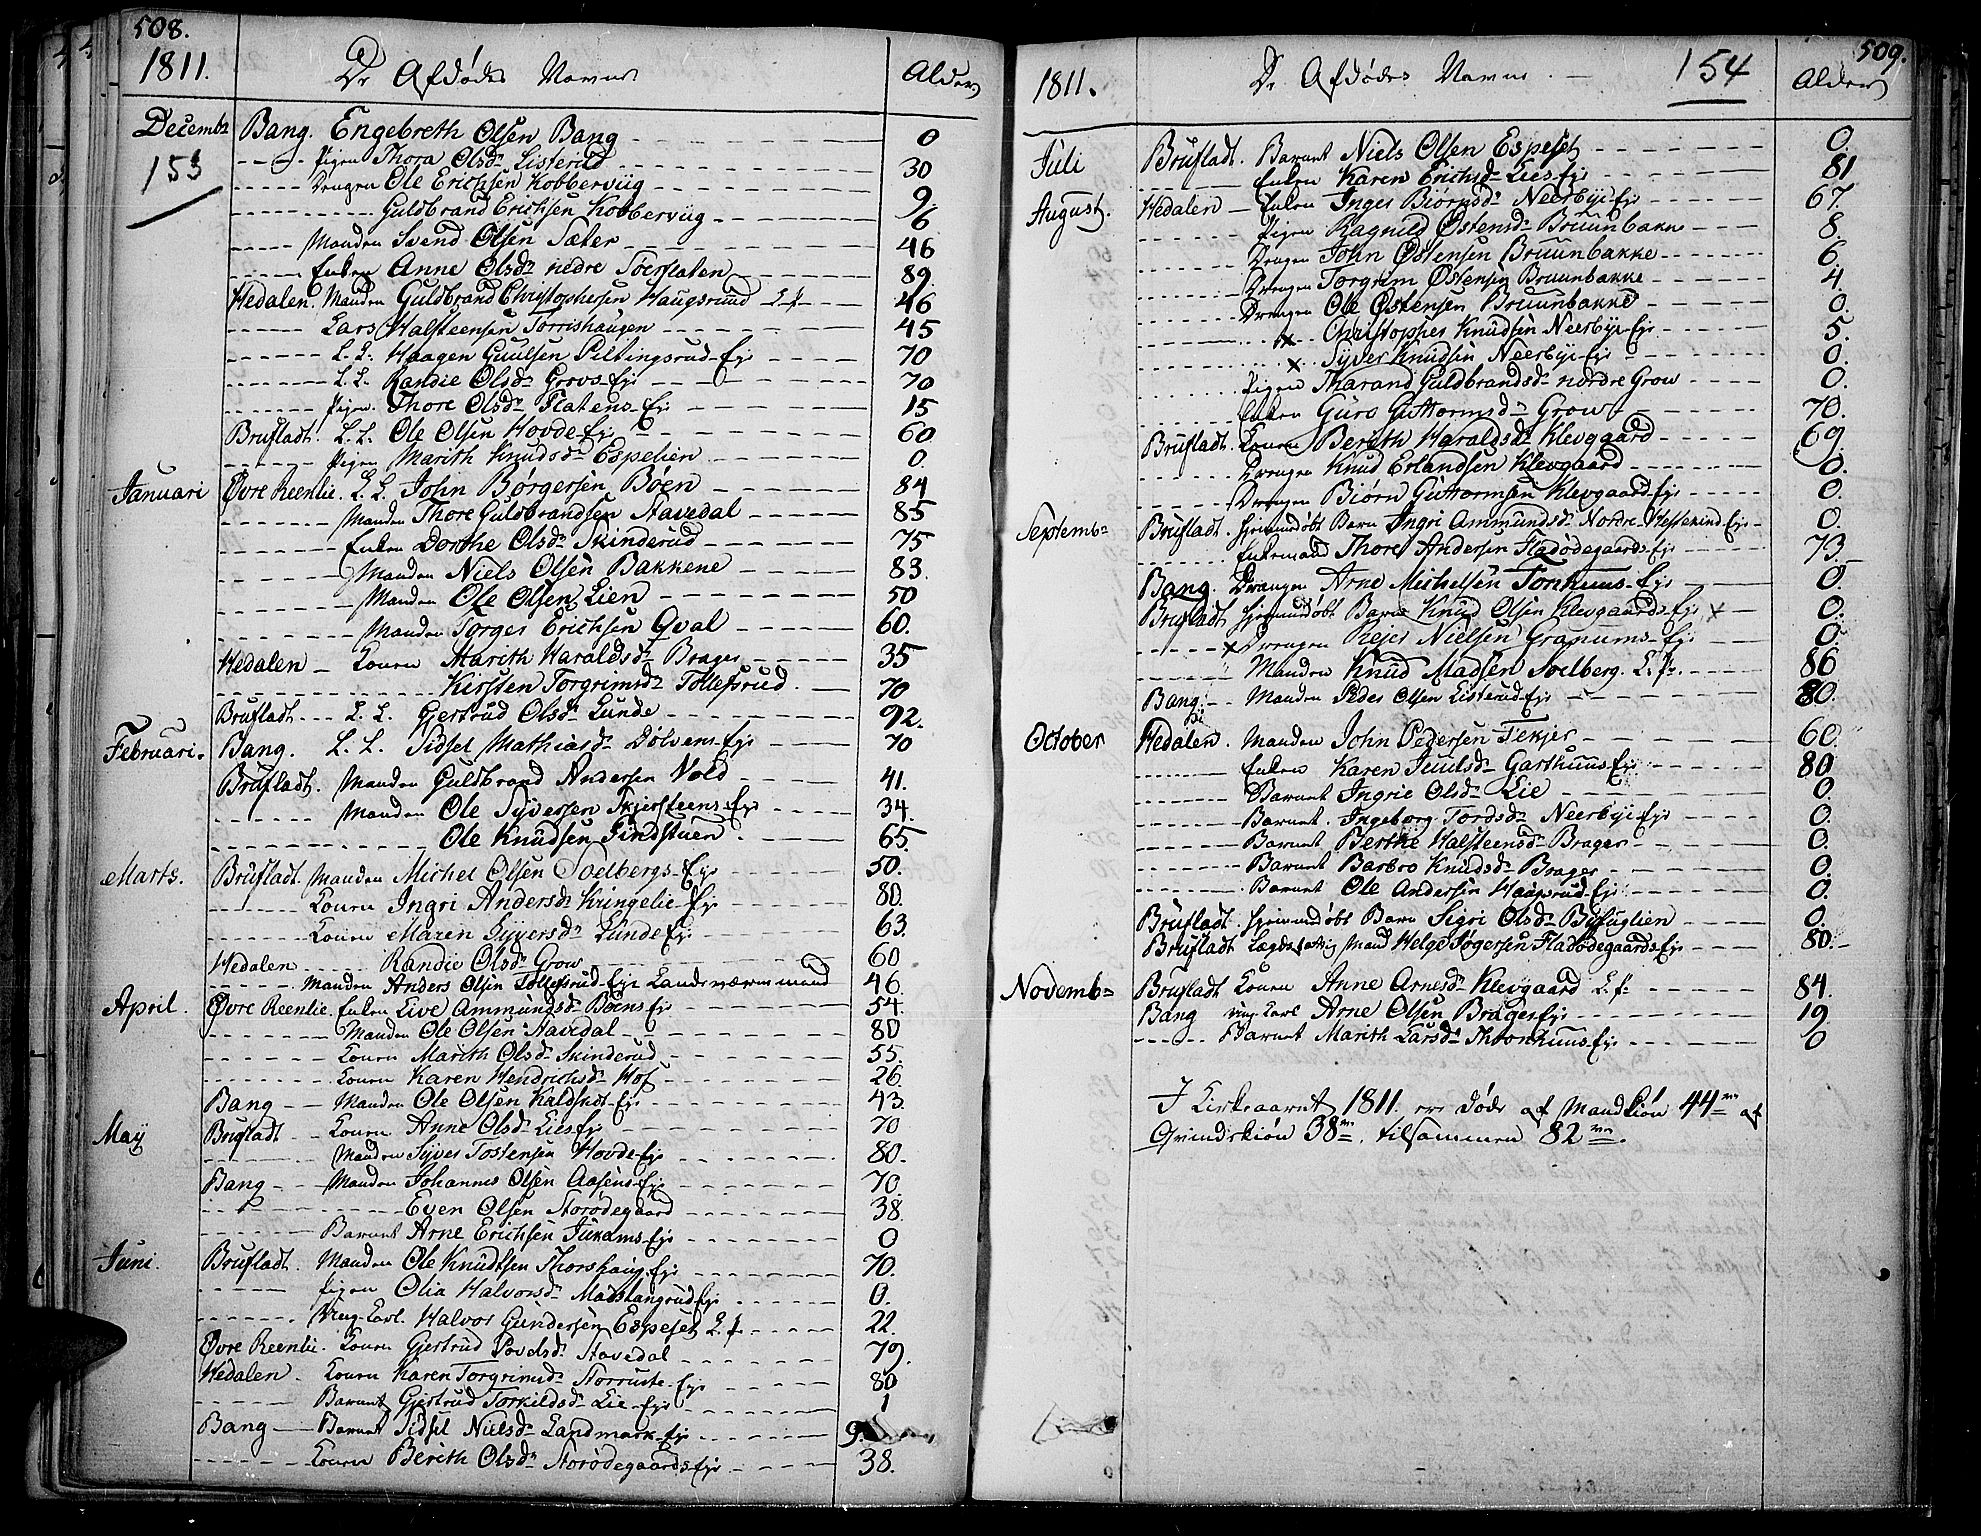 508.
1811. De Afdødes Navne Alder
Decembr Bang. Engebreth Olsen Bang 0
153
Pigen Thora Olsdr Listerud 30
Drengen Ole Erichsen Kobberviig 9
Guldbrand Erichsen Kobberviig 6
Manden Svend Olsen Sæter 46
Enken Anne Olsdr nedre Toerflaten 89
Hedalen. Manden Guldbrand Christophersen Haugsruud 46
Lars Halsteensen Torrishaugen 45
L. L. Haagen Guulsen Piltingsrud-Eje 70
L. L. Randie Olsdr Grovs-Eje 70
Pigen. Thore Olsdr Flatens-Ej 15
Brufladt. L. L. Ole Olsen Hovde Ej 60
Pigen Marith Knudsdr Espelien 0.
Januari Øvre Reenlie. L. L. John Børgersen Bøen 84
Manden Thore Guldbrandsen Stavedal 85
Enken Dorthe Olsdr Skinderud 75
Manden Niels Olsen Bakkene 83.
Manden Ole Olsen Lien 50
Manden Torger Erichsen Qval 60.
Hedalen Konen Marith Haraldsdr Brager 35
Kirsten Torgrimsdr Tollefsrud. 70
Brufladt L. L. Gjertrud Olsdr Lunde 92.
Februari. Bang. L. L. Sidsel Mathiasdr Dølvens-Eje 70
Brufladt. Manden Guldbrand Andersen Vold 41.
Manden Ole Syversen Skjersteens-Eje 34.
Ole Knudsen Findstuen. 65.
Marts. Brufladt. Manden Michel Olsen Soelbergs-Eje 50.
Konen Ingri Andersdr Kringelie-Eje 80.
Konen Maren Syversdr Lunde Ej 63.
Hedalen Randie Olsdr Grow 60
Manden Anders Olsen Tollefsrud-Eje Landeværnmand 46.
April. Øvre Reenlie. Enken Live Ammundsdr Bøens Ej 54.
Manden Ole Olsen Stavedal 80
Konen Marith Olsdr Skinderud 55.
Konen Karen Hendrichsdr Hof 26.
Bang Manden Ole Olsen Kaldsæt-Eje 43.
May Brufladt Konen Anne Olsdr Lies Ej 70
Manden Syver Tostensen Hovde-Eje 80.
Bang Manden Johannes Olsen Aasens-Eje 70.
Even Olsen Storødegaard 38.
Barnet Arne Erichsen Jukams-Eje 0
Juni. Brufladt. Manden Ole Knudtsen Thorshaug-Eje 70.
Pigen Olia Halvorsdr Madstangrud Eje 0.
Ung-Karl. Halvor Gundersen Espeset 22.
Øvre Reenlie. Konen Gjertrud Povelsdr Stavedal 79.
Hedalen. Konen Karen Torgrimsdr Storruste-Eje 80
Barnet Gjertrud Torkildsdr Lie-Eje 1
Bang Barnet Sidsel Nielsdr Landmark-Eje 9.
Konen Berith Olsdr Storødegaards Eje 38.
509.
1811. De Afdødes Navne. 154 Alder
Juli Brufladt. Barnet Niels Olsen Espeset 0.
Enken Karen Erichsdr Lies Eje 81
August. Hedalen Enken Inger Biørnsdr Neerbye-Eje 67.
Pigen Ragnild Østensdr Bruunbakke 8.
Drengen John Østensen Bruunbakke 6.
Drengen Torgrim Østensen Bruunbakke 4.
Drengen Ole Østensen Bruunbakke 0.
x Christopher Knudsen Neerbye Eje 5.
x Syver Knudsen Neerbye-Eje 0.
Pigen Tharand Guldbrandsdr nordre Grow 0.
Enken Guro Guttormsdr Grow 70.
Brufladt. Konen Berith Haraldsdr Klevgaard 69.
Drengen Knud Erlandsen Klevgaard 0.
Drengen Biørn Guttormsen Klevgaards-Eje 0.
Septembr Brufladt. hjemmedøbt Barn Ingri Ammundsdr Nordre-Hessekind Eje 0.
Enkemand Thore Andersen Fladødegaards Eje 73
Bang. Drengen Arne Michelsen Tonhuus-Eje 0.
Brufladt hjemmedøbt Barn Knud Olsen Klevgaards-Eje x 0.
x Drengen Peter Nielsen Granums-Eje 0
Manden Knud Madsen Soelberg. 86
Bang. Manden Peder Olsen Listerud-Eje 80.
October Hedalen. Manden John Pedersen Tekjer 60.
Enken Karen Juulsdr Garthuus Ej 80
Barnet Ingrie Olsdr Lie 0.
Barnet. Ingeborg Tordsdr Neerbye Eje 0.
Barnet Berthe Halsteensdr Brager 0.
Barnet Barbro Knudsdr Brager 0.
Barnet Ole Andersen Haugsrud Eje 0.
Brufladt hjemmedøbt Barn Sigri Olsdr Byfuglien 0.
Brufladt Lægdsfattig Mand Helge Aagersen Fladødegaards Eje 80.
Novembr Brufladt Konen Anne Arnesdr Klevgaard 84.
Bang Ung Karl Arne Olsen Brager Eje 19
Barnet Marith Larsdr Thoonhuus-Eje 0
I Kirkeaaret 1811. ere døde af Mandkiøn 44 af
Qvindekiøn 38, tilsammen 82.